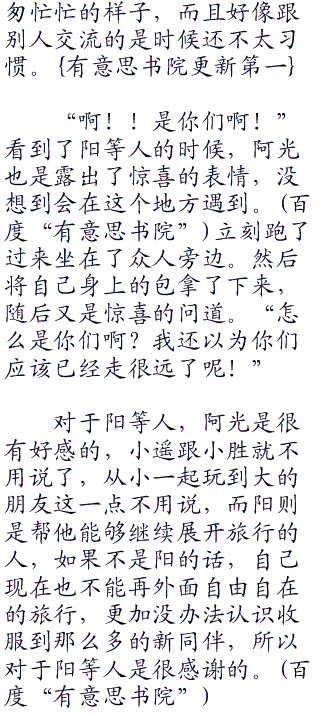 匆忙忙的样子，而且好像跟
别人交流的是时候还不太习
惯。{有意思书院更新第一}
“啊！！是你们啊！”
看到了阳等人的时候，阿光
也是露出了惊喜的表情，没
想到会在这个地方遇到。(百
度“有意思书院”)立刻跑了
过来坐在了众人旁边。然后
将自己身上的包拿了下来，
随后又是惊喜的问道。“怎
么是你们啊？我还以为你们
应该已经走很远了呢！”
对于阳等人，阿光是很
有好感的，小遥跟小胜就不
用说了，从小一起玩到大的
朋友这一点不用说，而阳则
是帮他能够继续展开旅行的
人，如果不是阳的话，自己
现在也不能再外面自由自在
的旅行，更加没办法认识收
服到那么多的新同伴，所以
对于阳等人是很感谢的。(百
度“有意思书院”)